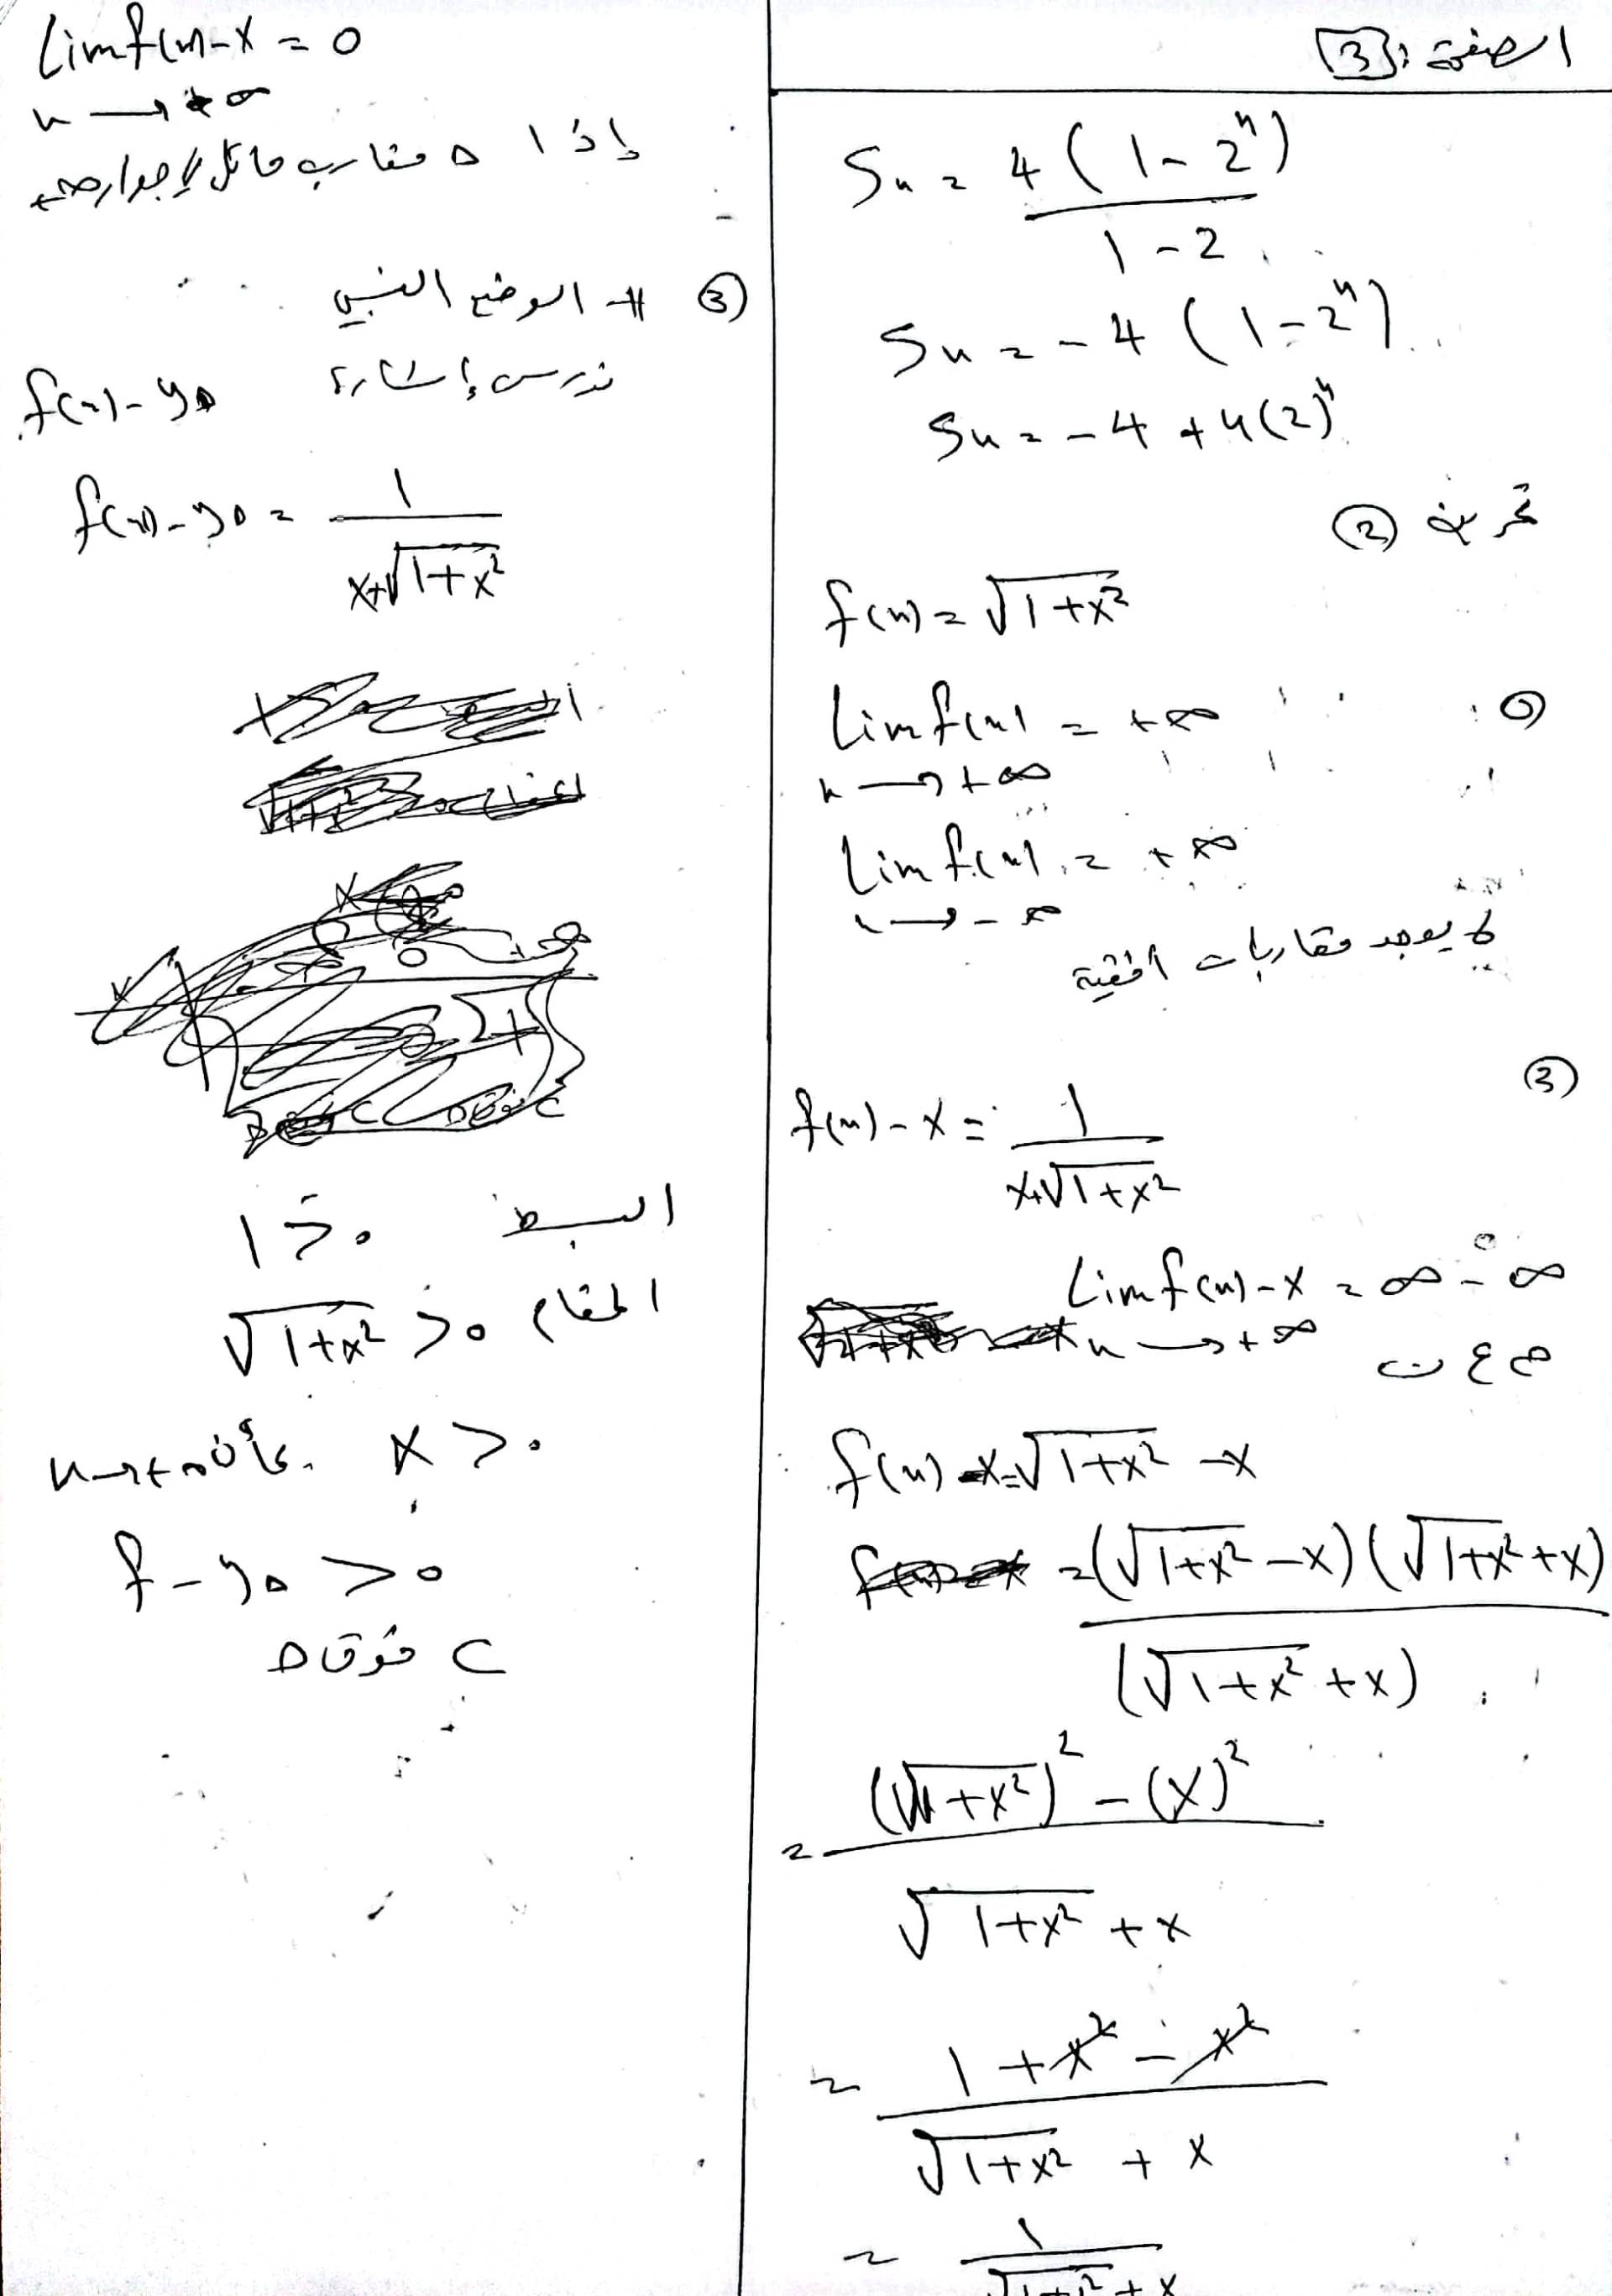 الصفحة: 3
Sn = 4(1-2^n) / 1-2
Sn = -4(1-2^n)
Sn = -4+4(2)^n
تمرين ②
f(x) = √(1+x²)
① lim f(x) = +∞
x → +∞
lim f(x) = +∞
x → -∞
لا يوجد مقاربات افقية
③
f(x)-x = 1 / x+√(1+x²)
lim f(x)-x = ∞-∞
x → +∞ ح ع ت
f(x)-x = √(1+x²) -x
= (√(1+x²) -x)(√(1+x²)+x) / (√(1+x²)+x)
= (√(1+x²))² - (x)² / √(1+x²) +x
= 1+x²-x² / √(1+x²) + x
= 1 / √(1+x²) + x
lim f(x)-x = 0
x → +∞
إذا Δ مقارب مائل لـ C بجوار +∞
③ # الوضع النسبي
ندرس إشارة f(x)-yΔ
f(x)-yΔ = 1 / x+√(1+x²)
البسط 1>0
المقام √(1+x²) >0
x>0 لأن x→+∞
f-yΔ >0
C فوق Δ